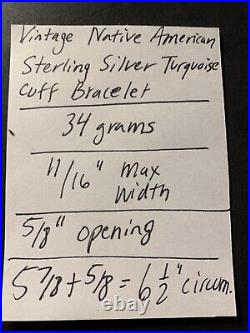 Vintage Native American
Sterling Silver Turquoise
Cuff Bracelet
34 grams
11/16" max
width
5/8" opening
5 7/8 + 5/8 = 6 1/2" circum.